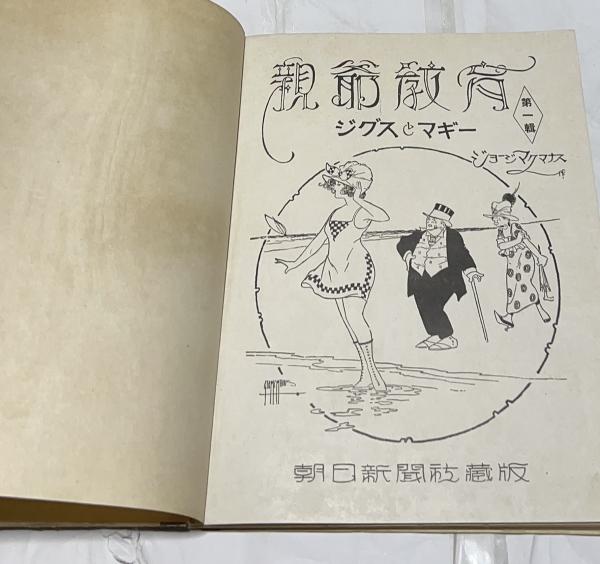 親爺教育
第一輯
ジグスとマギー
ジョージマクマナス作
朝日新聞社蔵版